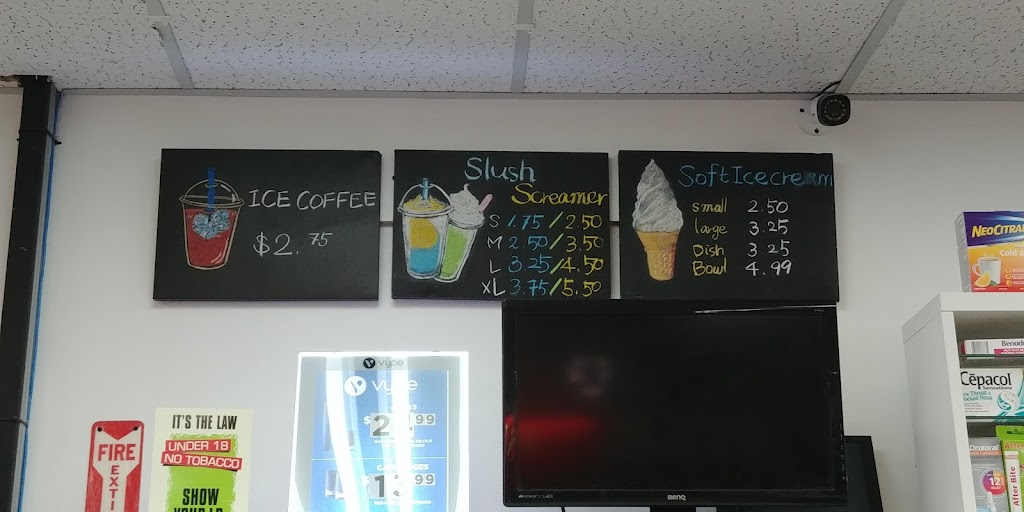 ICE COFFEE
$2.75
Slush
Screamer
S 1.75/2.50
M 2.50/3.50
L 3.25/4.50
XL 3.75/5.50
Soft Icecream
small 2.50
large 3.25
Dish 3.25
Bowl 4.99
NEOCITRAN
Cold &
FIRE
EXTI
IT'S THE LAW
UNDER 18
NO TOBACCO
SHOW
YOUR I.D.
vype
vype
.99
.99
BENQ
Cēpacol
Sensations
12
After Bite